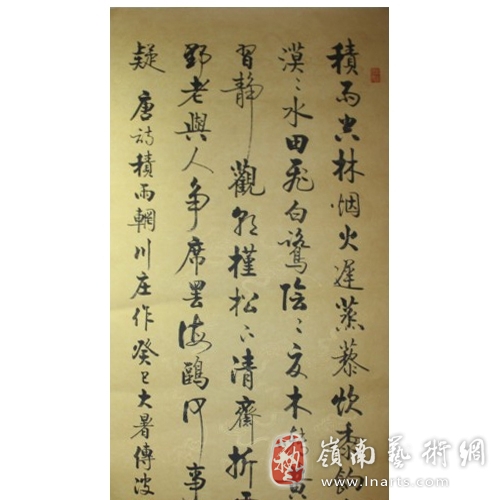 積雨空林烟火遲蒸藜炊黍餉
漠〻水田飛白鷺陰〻夏木
習静觀朝槿松下清齋折
野老與人争席罷海鷗何事
疑 唐詩積雨輞川庄作癸巳大暑傳波
嶺南藝術網
www.lnarts.com